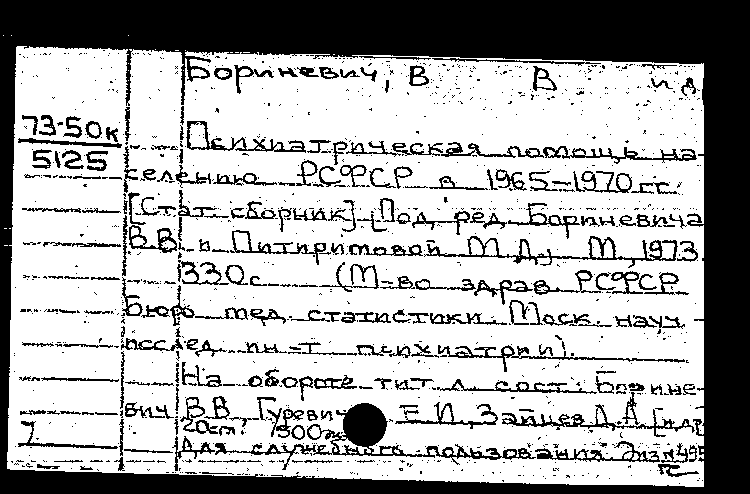 Бориневич, В В и д
73-50к
5125
Психиатрическая помощь на-
селению РСФСР в 1965-1970 гг.
[Стат сборник] [Под ред Бориневича
В.В. и Питиримовой М.Д.] М., 1973.
330с (М-во здрав РСФСР
Бюро мед. статистики. Моск. науч
исслед ин-т психиатрии).
На обороте тит л. сост: Борине-
вич В.В Гуревич Е И., Зайцев Д.А [и др
20см. 1500
7 Для служебного пользования Экз